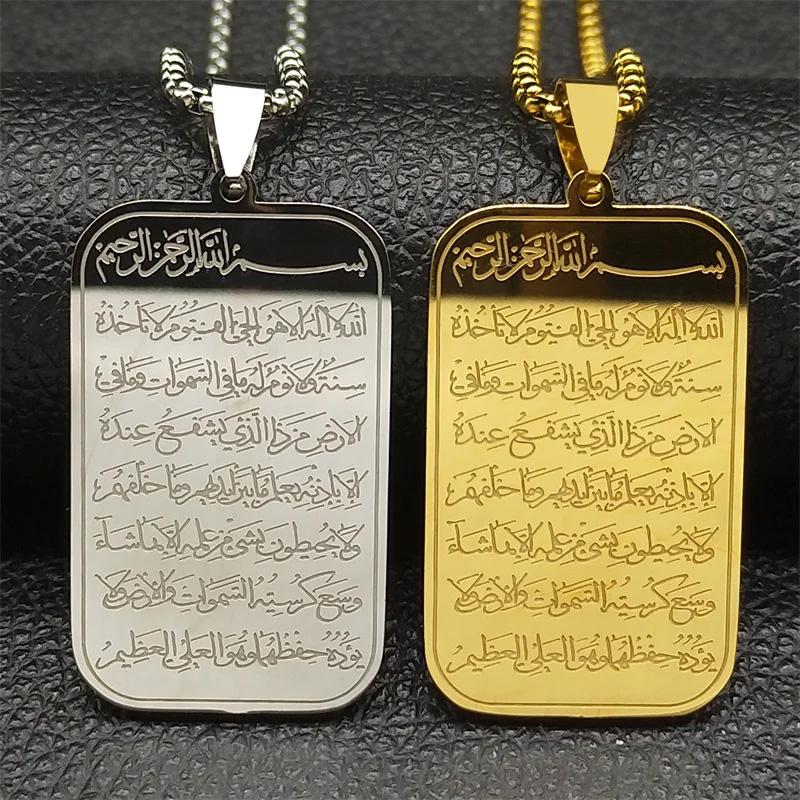 بسم الله الرحمن الرحيم
الله لا إله إلا هو الحي القيوم لا تأخذه
سنة ولا نوم له ما في السموات وما في
الارض من ذا الذي يشفع عنده
إلا بإذنه يعلم ما بين أيديهم وما خلفهم
ولا يحيطون بشئ من علمه إلا بما شاء
وسع كرسيه السموات والارض ولا
يؤده حفظهما وهو العلي العظيم
بسم الله الرحمن الرحيم
الله لا إله إلا هو الحي القيوم لا تأخذه
سنة ولا نوم له ما في السموات وما في
الارض من ذا الذي يشفع عنده
إلا بإذنه يعلم ما بين أيديهم وما خلفهم
ولا يحيطون بشئ من علمه إلا بما شاء
وسع كرسيه السموات والارض ولا
يؤده حفظهما وهو العلي العظيم